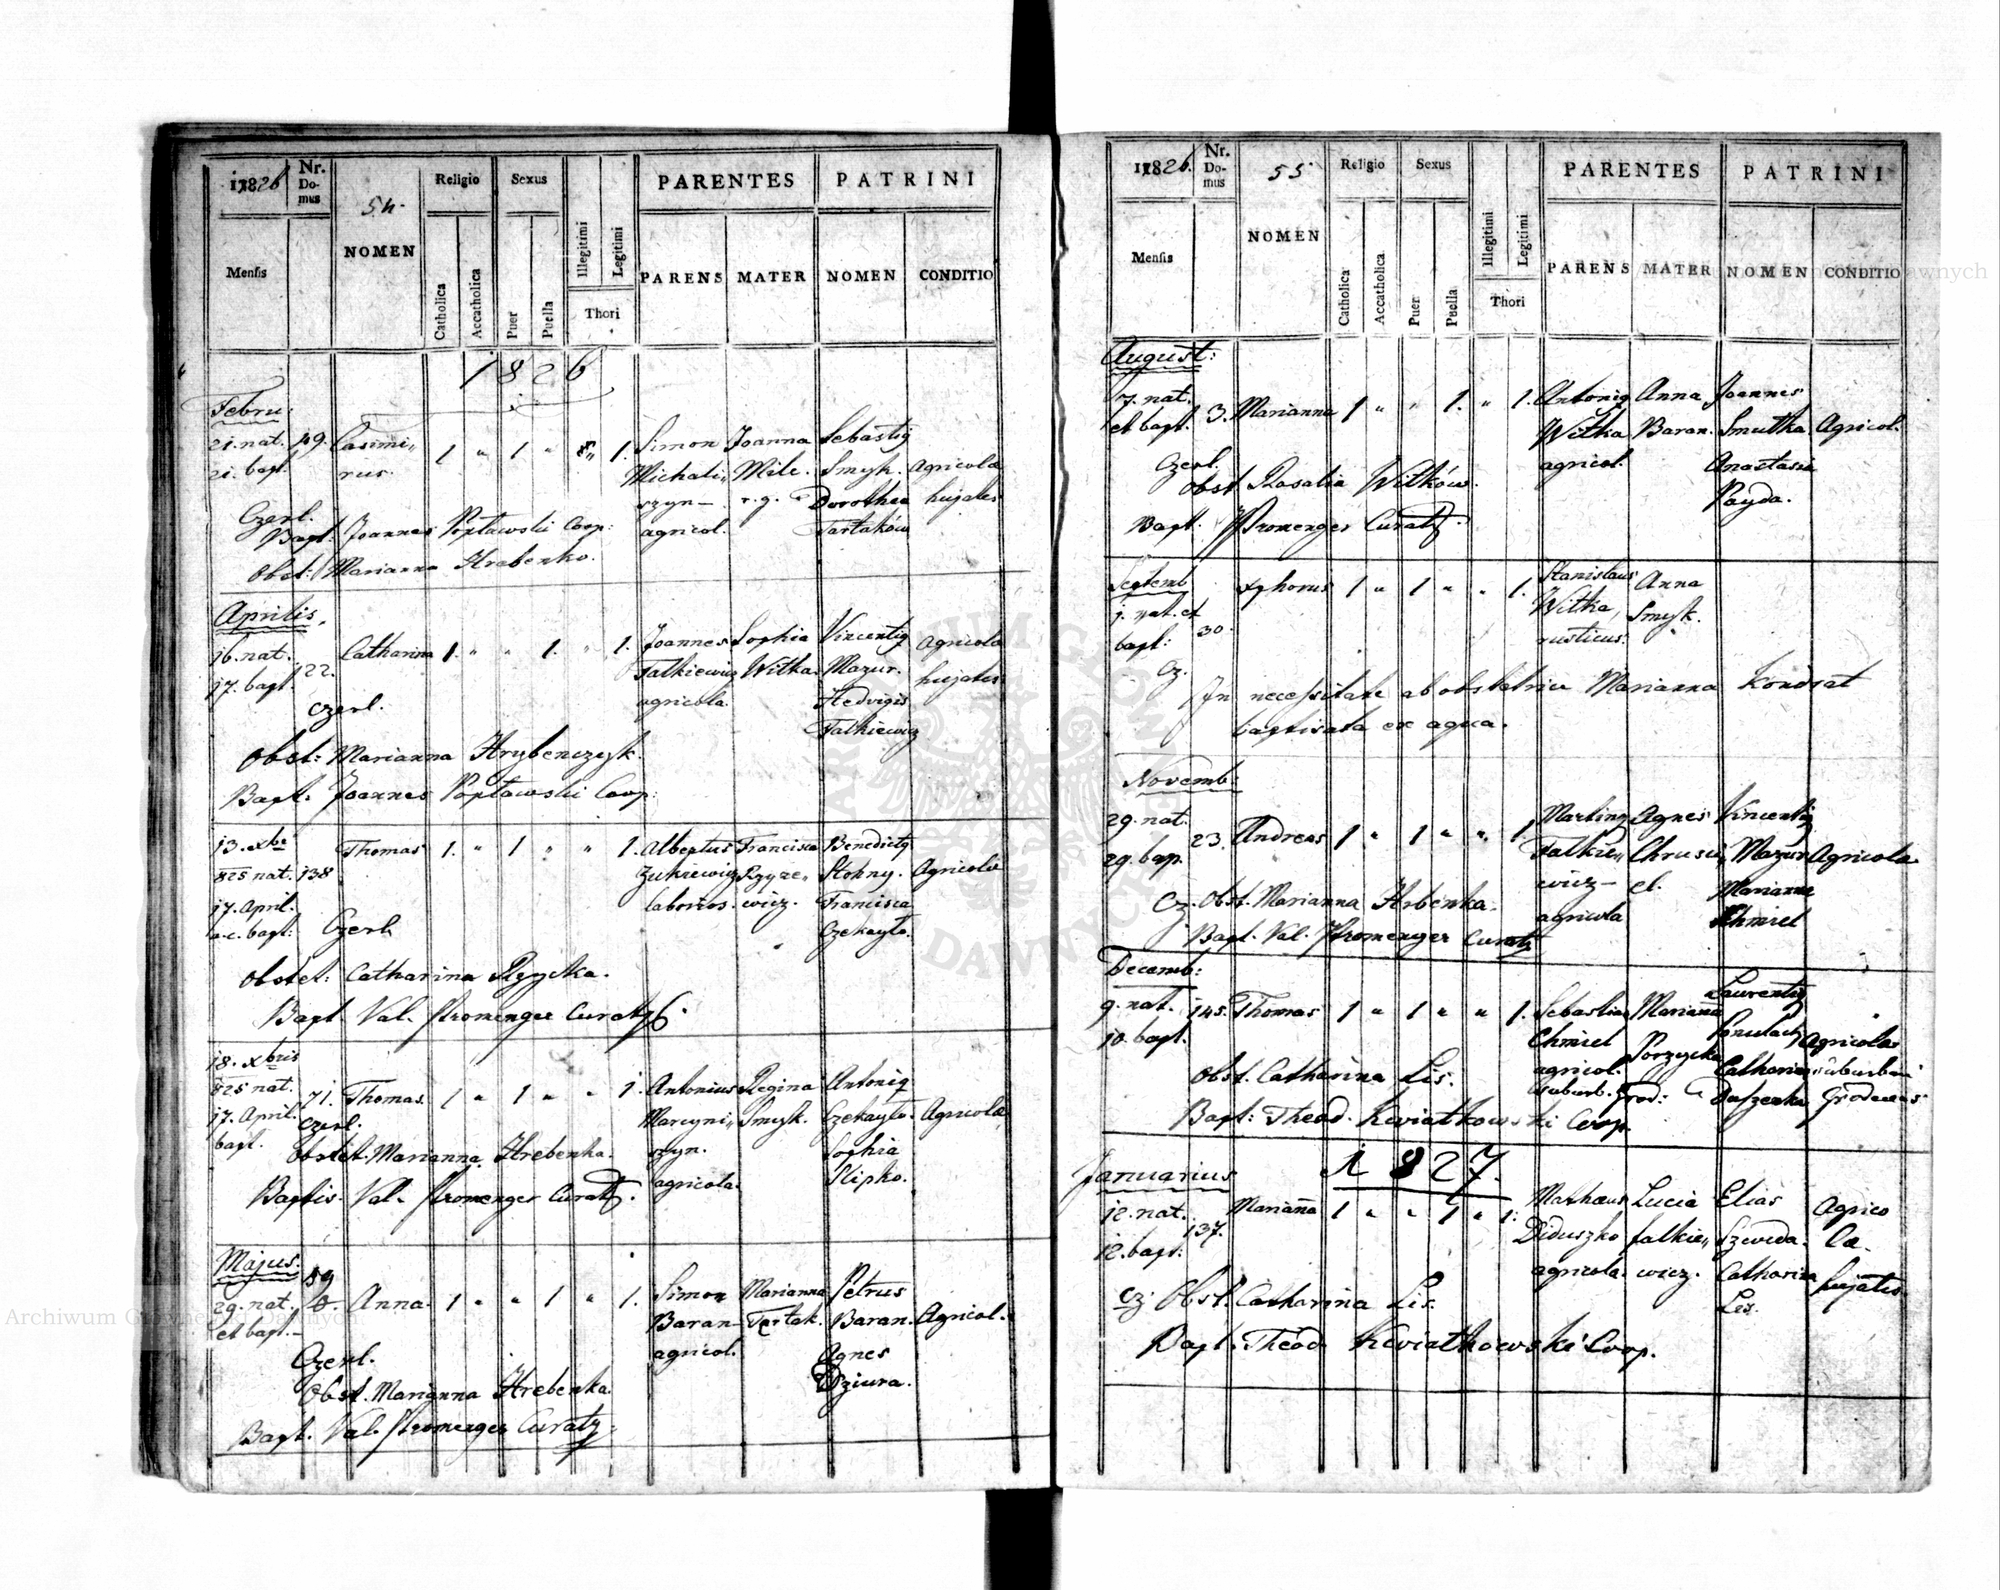 1826
Nr. Domus
54.
Religio
Sexus
PARENTES
PATRINI
Mensis
NOMEN
Catholica
Accatholica
Puer
Puella
Illegitimi
Legitimi
Thori
PARENS
MATER
NOMEN
CONDITIO
1826
Febru:
21. nat. 19. Casimi„ 1 „ 1 „ „ 1. Simon Joanna Sebastiq
21. bapt. rus. Michali„ Mile. Smyk. Agricolae
szyn— Dorothea hujates
Czerl. agricol. Tartaków
Bapt: Joannes Poptawski Coop:
Obst: Marianna Hrabenko.
Aprilis.
16. nat. 122. Catharina 1. „ „ 1. „ 1. Joannes Sophia Vincentiq Agricolae
17. bapt. Falkiewicz Witka. Mazur. hujates
Czerl. agricola. Hedvigis
Falkiewicz
Obst: Marianna Hrybenczyk.
Bapt. Joannes Poptawski Coop:
13. xbr Thomas 1. „ 1 „ „ 1. Albertus Francisca Benedictq
825 nat. 138 Zukiewicz Stokny. Agricolae
17. April. laborios. wicz. Francisca
a.c. bapt: Czerl. Czekayto.
Obstet: Catharina Rzycka.
Bapt. Val. Promenger Curatq
18. xbris
825 nat. 71. Thomas. 1 „ 1 „ „ 1. Antonius Regina Antoniq
17. April. Czerl. Marcyni„ Smyk. Czekayto. Agricolae
bapt. szyn. Sophia
Obstet. Marianna Hrebenka. agricola. Slipko.
Baptis. Val. Promenger Curatq.
Majus.
29. nat. 89 Anna. 1 „ „ 1 „ 1. Simon Marianna Petrus
et bapt.— Baran— Tartak. Baran. Agricol.
Czerl. agricol. Agnes
Obst. Marianna Hrebenka. Dziura.
Bapt. Val. Promenger Curatq.
1826.
Nr. Domus
55.
Religio
Sexus
PARENTES
PATRINI
Mensis
NOMEN
Catholica
Accatholica
Puer
Puella
Illegitimi
Legitimi
Thori
PARENS
MATER
NOMEN
CONDITIO
August:
7. nat. 3. Marianna 1 „ „ 1. „ 1. Antoniq Anna Joannes
et bapt. Witka Baran. Smutka Agricol.
Czerl. agricol. Anastasia
Obst Rosalia Witków. Payda.
Bapt. Promenger Curatq.
Septemb
1. nat. et 30. Aphorus 1 „ 1 „ „ 1. Stanislaus Anna
bapt: Witka, Smyk.
Cz. rusticus.
In necessitate ab obstetrice Marianna Kondrat
baptisata ex aqua.
Novemb:
29. nat. 23. Andreas 1 „ 1 „ „ 1 Martinq Agnes Vincentiq
29. bap. Falkie„ Chrusci„ Mazur Agricolae
wicz— el. Marianna
Cz. Obst. Marianna Hrbenka. agricola Chmiel
Bapt. Val. Promenger Curatq
Decemb:
9. nat. 145. Thomas 1 „ 1 „ „ 1. Sebastian Marianna Laurentiq
10. bapt. Chmiel Porzycka Agricolae
agricol. Catharina suburbani
Obst. Catharina Lis. suburb. Grod: Duszenka
Bapt: Theod. Kwiatkowski Coop.
1827.
Januarius
12. nat. 137. Marianna 1 „ „ 1 „ 1. Mathaeus Lucia Elias Agrico
12. bapt: Diduszko Falkie„ Szweda. lae.
agricola. wicz. Catharina hujates.
Lis.
Cz: Obst. Catharina Lis.
Bapt. Theod. Kwiatkowski Coop.
Archiwum Główne Akt Dawnych